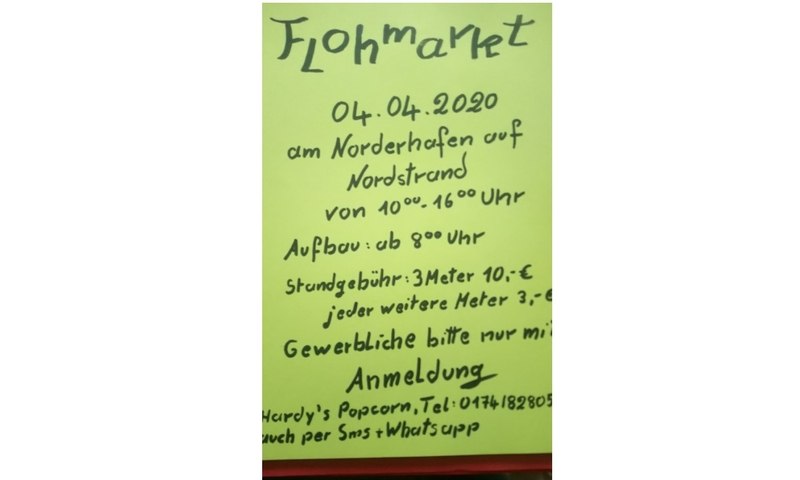 Flohmarkt
04.04.2020
am Norderhafen auf
Nordstrand
von 10⁰⁰-16⁰⁰ Uhr
Aufbau: ab 8⁰⁰ Uhr
Standgebühr: 3 Meter 10,-€
jeder weitere Meter 3,-€
Gewerbliche bitte nur mit
Anmeldung
Hardy's Popcorn, Tel: 0174182805
auch per Sms + Whatsapp